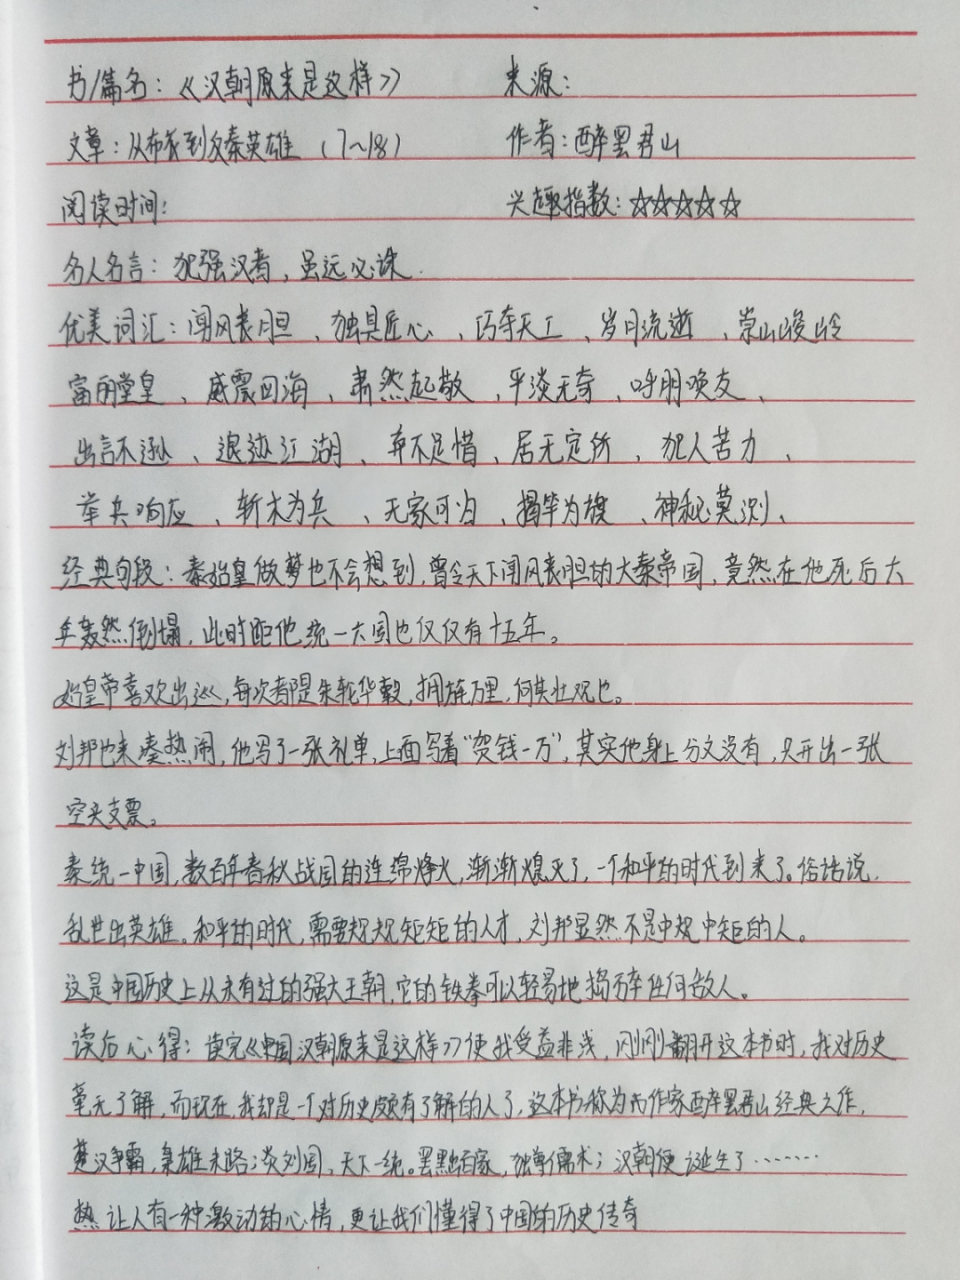 书/篇名：《汉朝原来是这样》 来源：
文章：从布衣到反秦英雄 （7~18） 作者：醉罢君山
阅读时间： 兴趣指数：☆☆☆☆☆
名人名言：犯强汉者，虽远必诛.
优美词汇：闻风丧胆 、独具匠心 、巧夺天工 、岁月流逝 、崇山峻岭
富丽堂皇 、威震四海 、肃然起敬 、平淡无奇 、呼朋唤友 、
出言不逊 、退迹江湖 、弃不足惜 、居无定所 、犯人苦力 、
举兵响应 、斩木为兵 、无家可归 、揭竿为旗 、神秘莫测 、
经典句段：秦始皇做梦也不会想到，曾令天下闻风丧胆的大秦帝国，竟然在他死后大
年轰然倒塌，此时距他统一大国也仅仅有十五年。
始皇帝喜欢出巡，每次都是朱轮华毂，拥旄万里，何其壮观也。
刘邦也来凑热闹，他写了一张礼单，上面写着“贺钱一万”，其实他身上分文没有，只开出一张
空头支票。
秦统一中国，数百年春秋战国的连绵烽火，渐渐熄灭了，一个和平的时代到来了。俗话说，
乱世出英雄。和平的时代，需要规规矩矩的人才，刘邦显然不是中规中矩的人。
这是中国历史上从未有过的强大王朝，它的铁拳可以轻易地捣碎任何敌人。
读后心得：读完《中国汉朝原来是这样》使我受益非浅，刚刚翻开这本书时，我对历史
毫无了解，而现在，我却是一个对历史颇有了解的人了，这本书称为作家醉罢君山经典之作，
楚汉争霸，枭雄末路；炎刘国，天下一统。罢黜百家，独尊儒术；汉朝便诞生了……
热 让人有一种激动的心情，更让我们懂得了中国的历史传奇